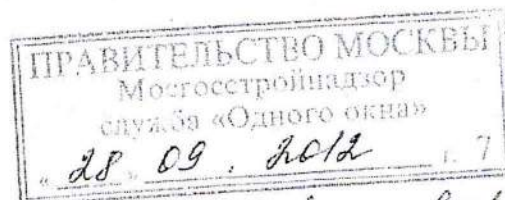 ПРАВИТЕЛЬСТВО МОСКВЫ
Мосгосстройнадзор
служба «Одного окна»
« 28 » 09 . 2012 г. 7